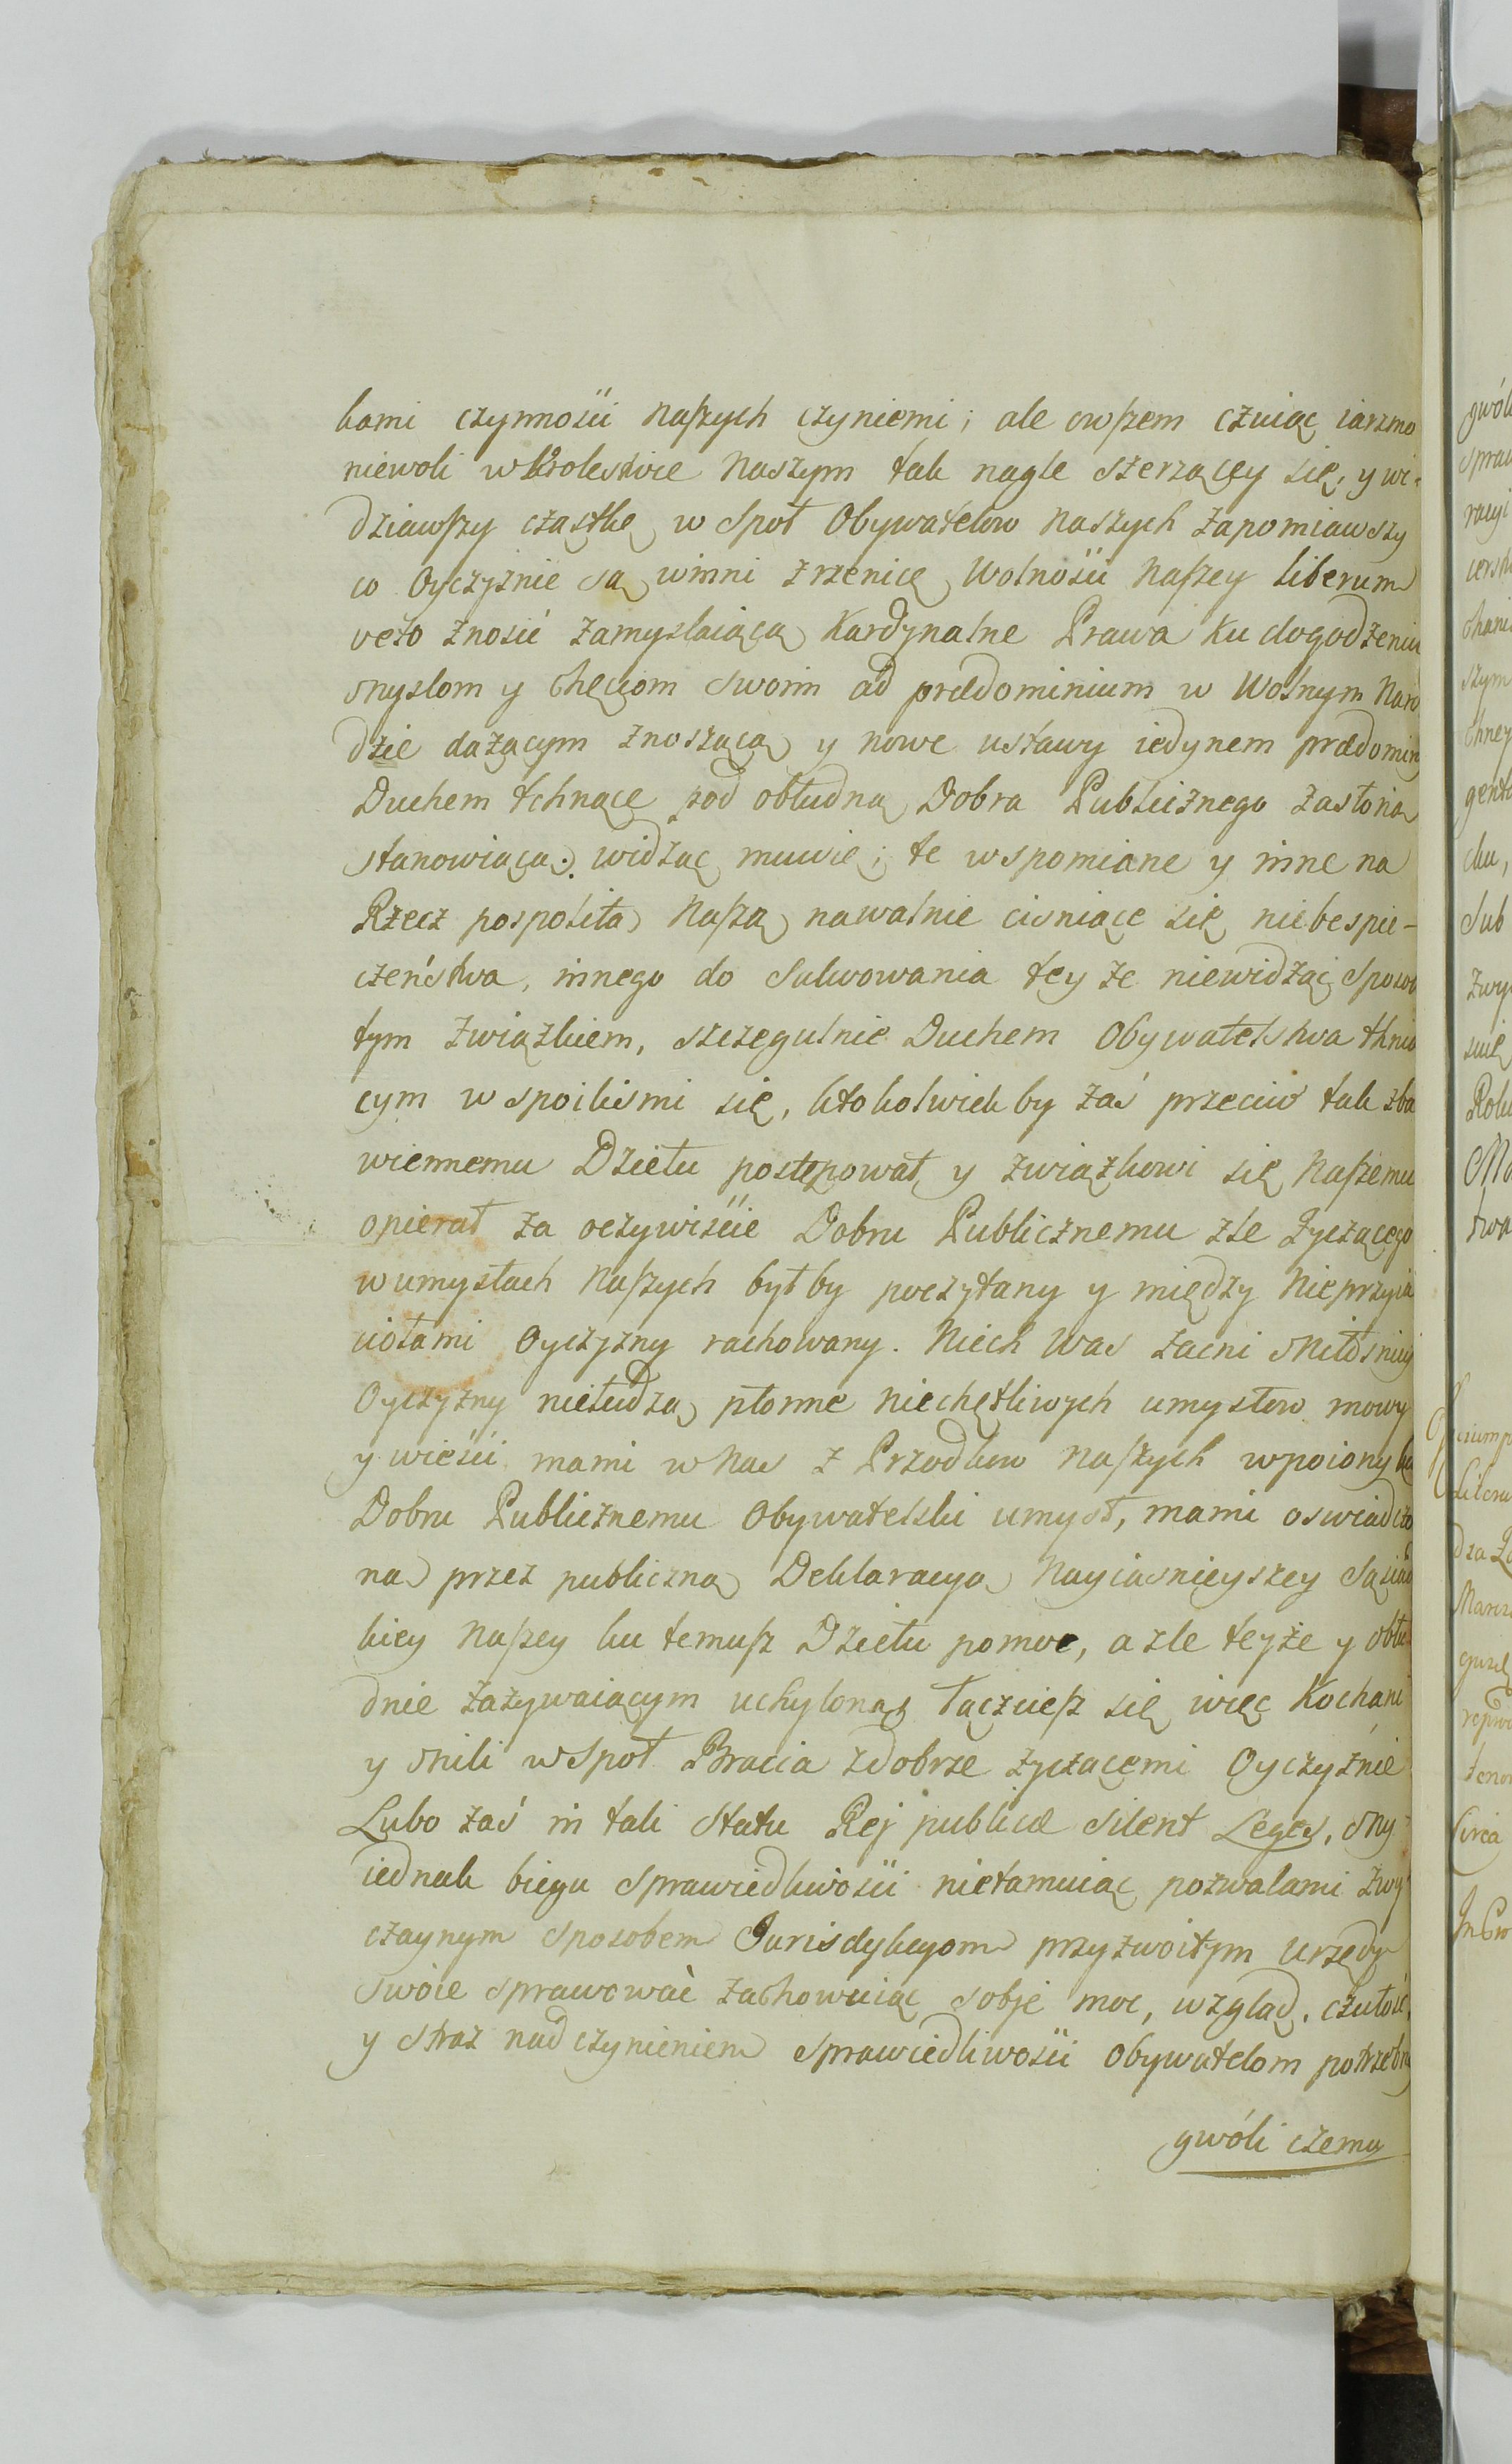 kami czynności naszych czyniemi; ale owszem czuiąc iarzmo
niewoli w Krolestwie naszym tak nagle szerzącey się, y wi-
dziawszy cząstkę w społ Obywatelow naszych zapomniawszy
co Oyczyznie są winni zrzenicę Wolności naszey liberum
veto znosić zamyslaiącą Kardynalne Prawa ku dogodzeniu
myslom y chęciom swoim ad prædominium w Wolnym Naro
dzie dażącym znoszącą y nowe ustawy iedynem prædominij
Duchem tchnące pod obłudną Dobra Publicznego zasłoną
stanowiącą: widząc muwię; te wspomiane y inne na
Rzecz pospolitą naszą nawalnie cisniące się niebespie-
czeństwa, innego do salwowania tey że niewidząc sposo
tym związkiem, szczegulnie Duchem Obywatelstwa thną
cym w spoilismi się, ktokolwiek by zaś przeciw tak zba
wiennemu Dziełu postępował y związkowi się naszemu
opierał za oczywiście Dobru Publicznemu zle życzącego
w umysłach naszych byłby poczytany y między Nieprzyia
ciołami Oyczyzny rachowany. Niech was zacni Miłosnicy
Oyczyzny niełudzą płonne niechętliwych umysłow mowy
y wieści mami w nas z Przodkow naszych wpoiony ku
Dobru Publicznemu Obywatelski umysł, mami oswiadczo
ną przez publiczną Deklaracyą Nayiasnieyszey Sąsiad
kiey naszey ku temusz Dziełu pomoc, a zle teyże y obłu
dnie zażywaiącym uchyloną, łączciesz się więc Kochani
y mili wspoł Bracia z dobrze życzącemi Oyczyźnie
Lubo zaś in tali statu Rej publicæ silent Leges, my
iednak biegu sprawiedliwości nietamuiąc pozwalami zwy
czaynym sposobem Jurisdykcyom przyzwoitym urzędy
swoie sprawować zachowuiąc sobje moc, wzgląd, czułość,
y straz nad czynieniem sprawiedliwości Obywatelom potrzebny
gwóli czemu